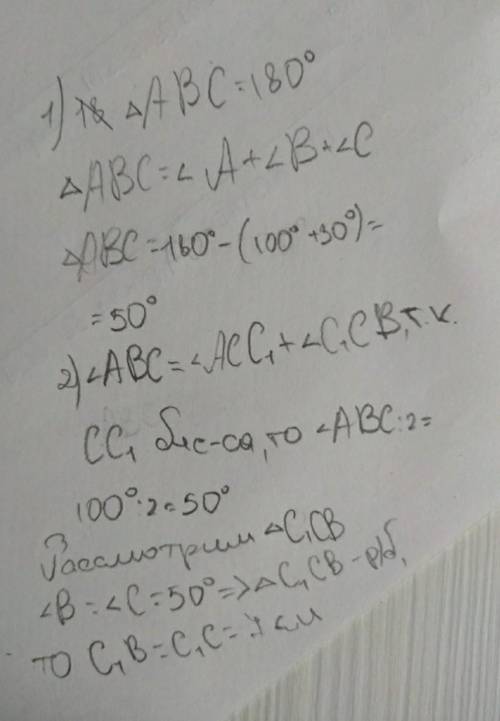 1) △ABC=180°
△ABC=∠A+∠B+∠C
△ABC=180°-(100°+30°)=
=50°
2) ∠ABC=∠ACC₁+∠C₁CB, т.к.
CC₁ бис-са, то ∠ABC:2=
100°:2=50°
Рассмотрим △C₁CB
∠B=∠C=50°=>△C₁CB-р/б,
то C₁B=C₁C=7 см